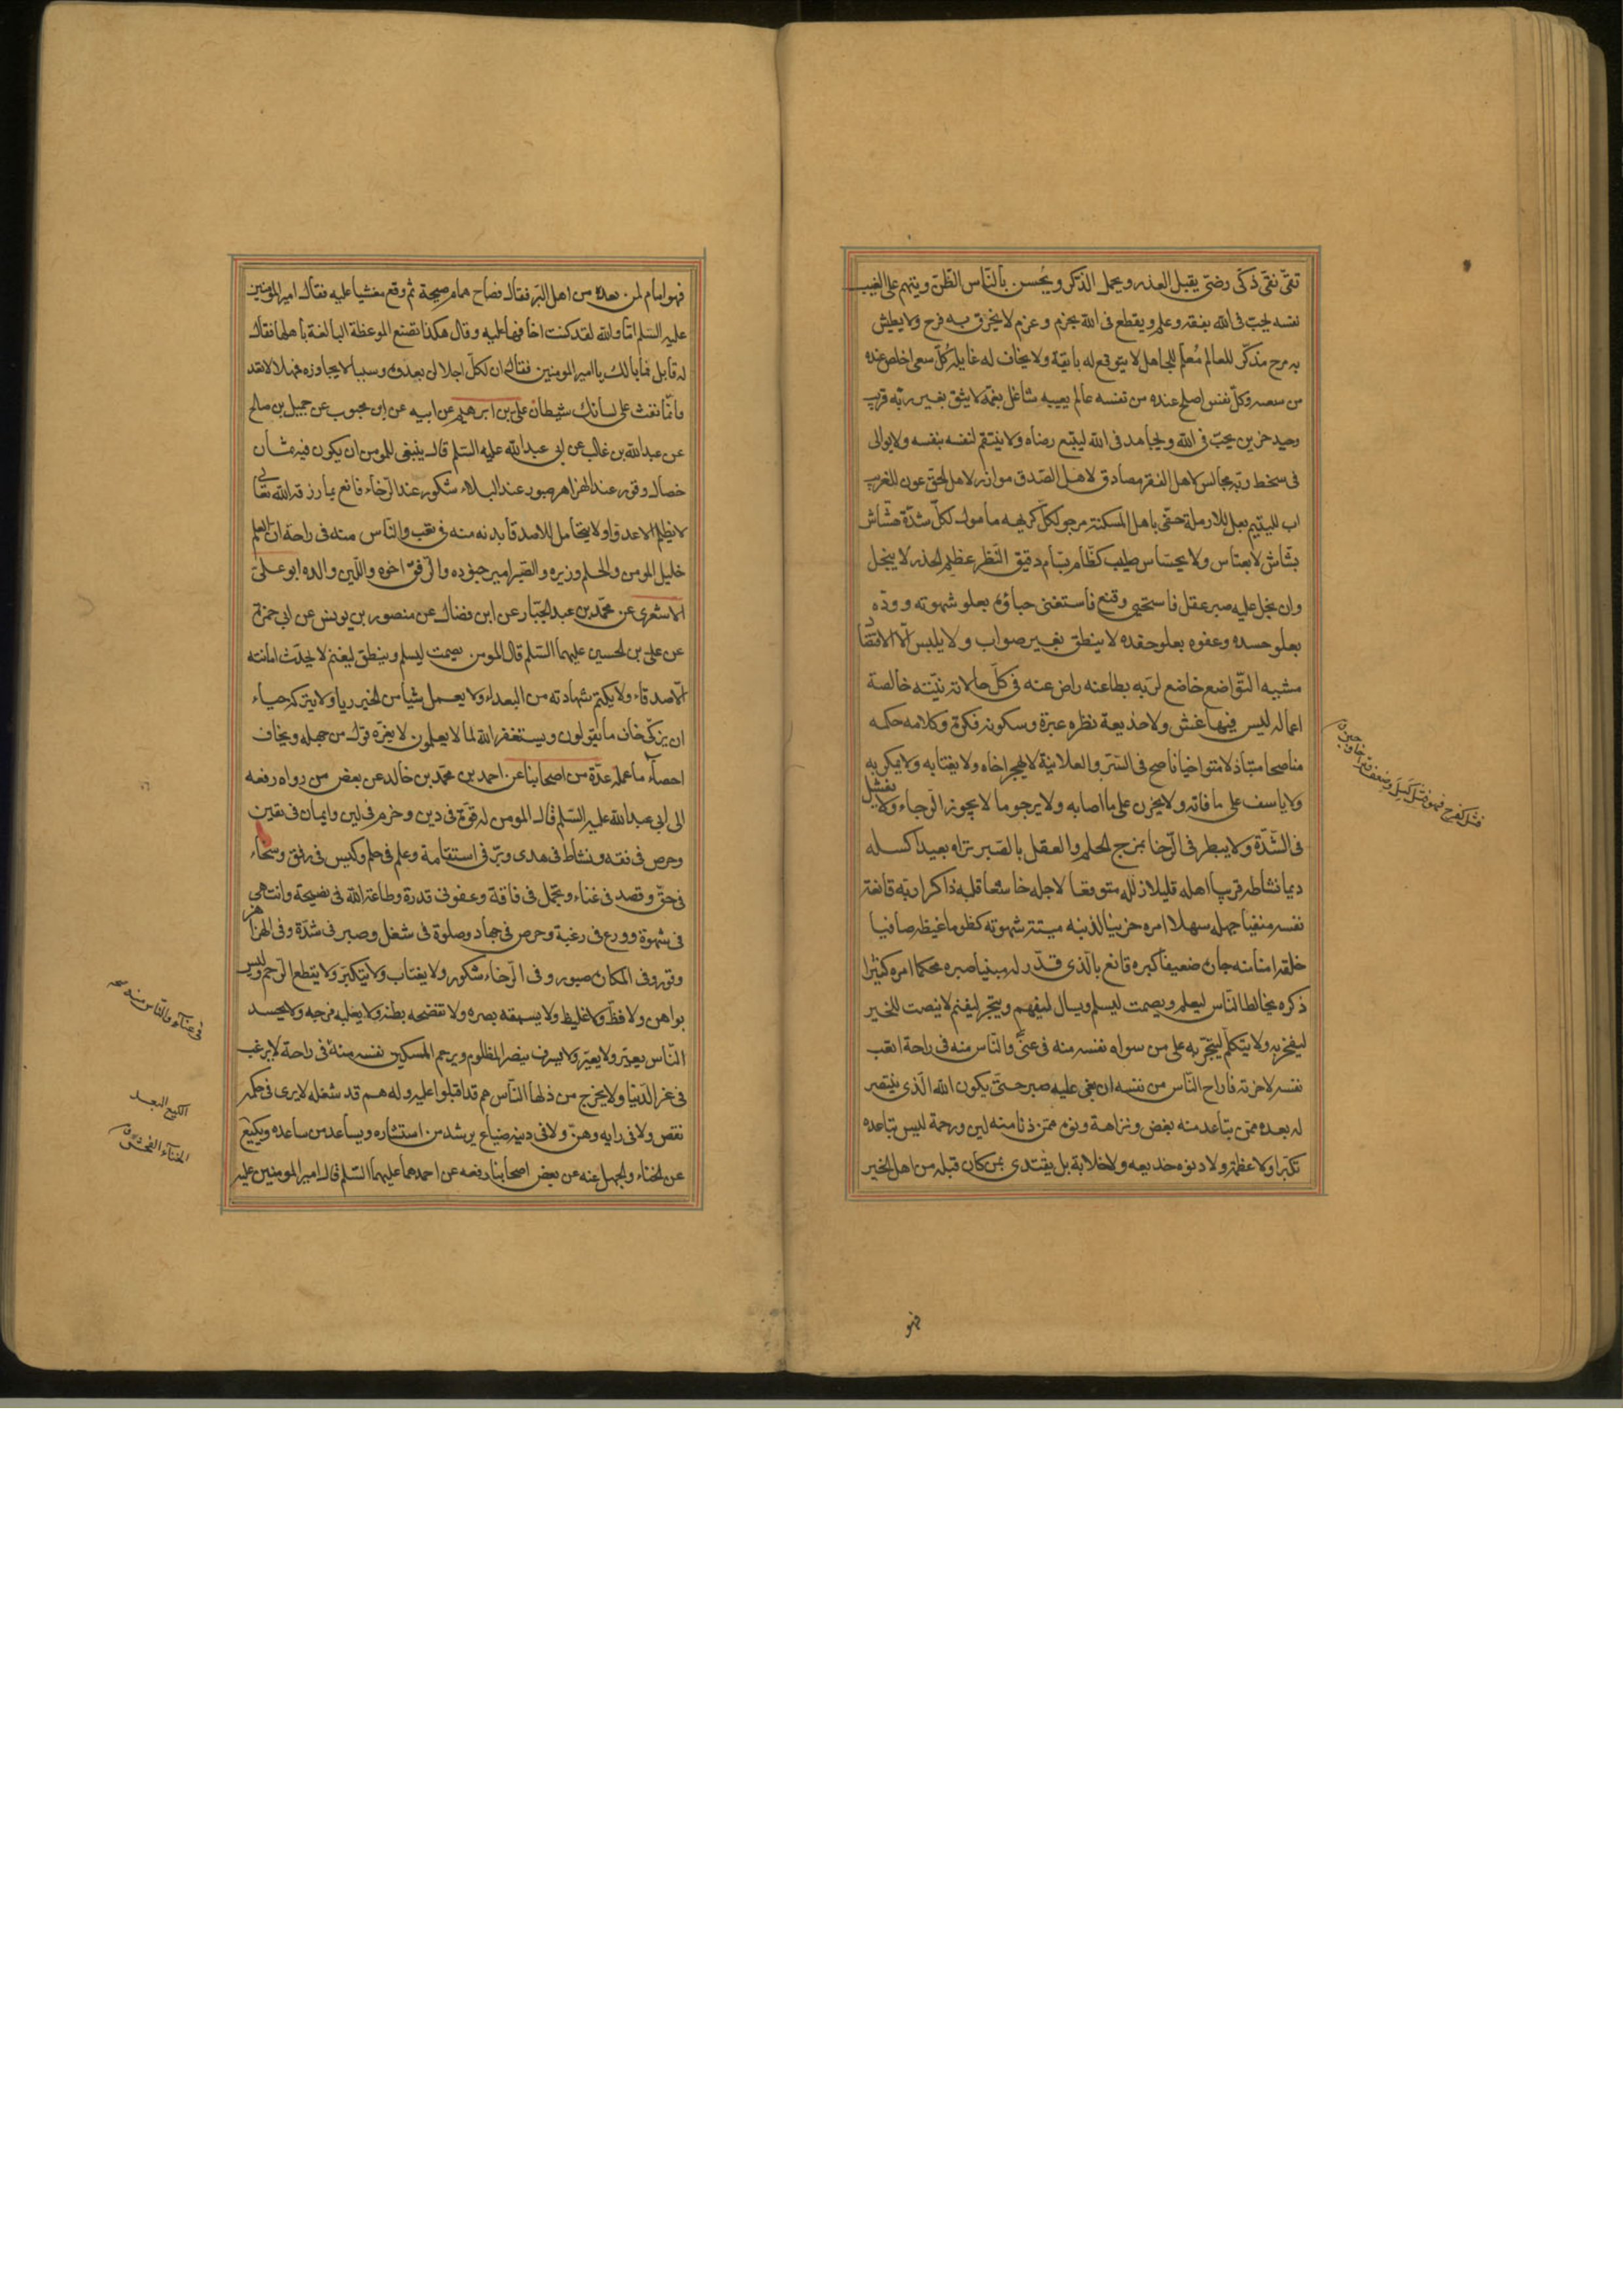 تقىّ نقىّ ذكىّ رضىّ يقبل العذر و يجمل الذكر و يُحسن بالنّاس الظّنّ و يتهم على الغيب
نفسه يحبّ فى الله بفقه و علم و يقطع فى الله بحزم و عزم لا يخرق به فرح و لا يطيش
به مرح مذكّر للعالم مُعلم للجاهل لا يتوقع له بايقة و لا يخاف له غايلة كلّ سعى اخلص عنده
من سعيه و كلّ نفس اصلح عنده من نفسه عالم بعيبه شاغل بغمّه لا يثق بغير ربّه قريب
وحيد حزين يحبّ فى الله و يجاهد فى الله ليتبع رضاه و لا ينتقم لنفسه بنفسه و لا يوالى
فى سخط ربّه مجالس لاهل الفقر مصادق لاهل الصّدق موازر لاهل الحق عون للغريب
اب لليتيم بعل للارملة حفىّ باهل المسكنة مرجو لكلّ كريهه مامول لكلّ شدّة هشّاش
بشّاش لا بعبّاس و لا بجسّاس صليب كظّام بسّام دقيق النّظر عظيم الحذر لا يبخل
و ان بخل عليه صبر عقل فاستحيى و قنع فاستغنى حياؤه يعلو شهوته و ودّه
يعلو حسده و عفوه يعلو حقده لا ينطق بغير صواب و لا يلبس الّا الاقتصاد
مشيه التّواضع خاضع لربّه بطاعته راض عنه فى كلّ حالاته نيّته خالصة
اعماله ليس فيها غش و لا خديعة نظره عبرة و سكوته فكرة و كلامه حكمه
مناصحا متباذلا متواخيا ناصح فى السّر و العلانية لا يهجر اخاه و لا يغتابه و لا يمكر به
و لا ياسف على ما فاته و لا يحزن على ما اصابه و لا يرجو ما لا يجوز له الرّجاء و لا يفشل
فى الشّدّة و لا يبطر فى الرّخا يمزج الحلم و العقل بالصّبر تراه بعيدا كسله
دايما نشاطه قريبا امله قليلا زلله متوقعا لاجله خاشعا قلبه ذاكرا ربّه قانعة
نفسه منفيا جهله سهلا امره حزينا لذنبه ميتة شهوته كظوما غيظه صافيا
خلقه امنا منه جاره ضعيفا كبره قانعا بالّذى قدّر له مبينا صبره محكما امره كثيرا
ذكره يخالط النّاس ليعلم و يصمت ليسلم و يسال ليفهم و يتّجر ليغنم لا ينصت للخير
ليفخر به و لا يتكلّم ليتجبّر به على من سواه نفسه منه فى عنىّ و النّاس منه فى راحة اتعب
نفسه لاخرته فاراح النّاس من نفسه ان بغى عليه صبر حتّى يكون الله الّذى ينتصر
له بعده ممّن تباعد منه بغض و نزاهة و دنوه ممّن دنا منه لين و رحمة ليس تباعده
تكبّرا و لا عظمة و لا دنوه خديعه و لا خلابة بل يقتدى بمن كان قبله من اهل الخير
فشل كفرح فهو فشل كسل و ضعف
فهو
فهو امام لمن بعده من اهل البرّ فقال فصاح همام صيحة ثم وقع مغشيا عليه فقال امير المؤمنين
عليه السّلم اما و الله لقد كنت اخافها عليه و قال هكذا تصنع الموعظة البالغة باهلها فقال
له قايل فما بالك يا امير المومنين فقال ان لكلّ اجلا لن يعدوه و سببا لا يجاوزه فمهلا لا تعد
فانّما نفث على لسانك شيطان علىّ بن ابرهيم عن ابيه عن ابن محبوب عن جميل بن صالح
عن عبد الله بن غالب عن ابى عبد الله عليه السّلم قال ينبغى للمومن ان يكون فيه ثمان
خصال وقور عند الهزاهز صبور عند البلاء شكور عند الرّخاء قانع بما رزقه الله تعالى
لا يظلم الاعدا و لا يتحامل للاصدقا بدنه منه فى تعب و النّاس منه فى راحة ان العلم
خليل المومن و الحلم وزيره و الصّبر امير جنوده و الرّفق اخوه و اللّين والده ابو علىّ
الاشعرى عن محمّد بن عبد الجبّار عن ابن فضال عن منصور بن يونس عن ابى حمزة
عن علىّ بن الحسين عليهما السّلم قال المومن يصمت ليسلم و ينطق ليغنم لا يحدّث امانته
الاصدقاء و لا يكتم شهادته من البعداء و لا يعمل شيا من الخير ريا و لا يتركه حياء
ان زكّى خاف ما يقولون و يستغفر الله لما لا يعلمون لا يغرّه قول من جهله و يخاف
احصاء ما عمله عدّة من اصحابنا عن احمد بن محمّد بن خالد عن بعض من رواه رفعه
الى ابى عبد الله عليه السّلم قال المومن له قوّة فى دين و حزم فى لين و ايمان فى يقين
و حرص فى فقه و نشاط فى هدى و برّ فى استقامة و علم فى حلم و كيس فى رفق و سخاء
فى حقّ و قصد فى غناء و تجمّل فى فاقة و عفو فى قدرة و طاعة الله فى نصيحة و انتهى
فى شهوة و ورع فى رغبة و حرص فى جهاد و صلوة فى شغل و صبر فى شدّة و فى الهزاهز
وقور و فى المكاره صبور و فى الرّخاء شكور و لا يغتاب و لا يتكبّر و لا يقطع الرّحم و ليس
بواهن و لا فظّ و لا غليظ و لا يسبقه بصره و لا تفضحه بطنه و لا يغلبه فرجه و لا يحسد
النّاس يعيّر و لا يعيّر و لا يسرف ينصر المظلوم و يرحم المسكين نفسه منه فى راحة لا يرغب
فى عز الدّنيا و لا يجزع من ذلها للنّاس هم قد اقبلوا عليه و له هم قد شغله لا يرى فى حكمه
نقص و لا فى رايه وهن و لا فى دينه ضياع يرشد من استشاره و يساعد من ساعده و يكيع
عن الخناء و الجهل عنه عن بعض اصحابنا رفعه عن احدهما عليهما السّلم قال امير المومنين عليه
فى عناء و النّاس منه صح
الكيع البعد
الخناء الفحش